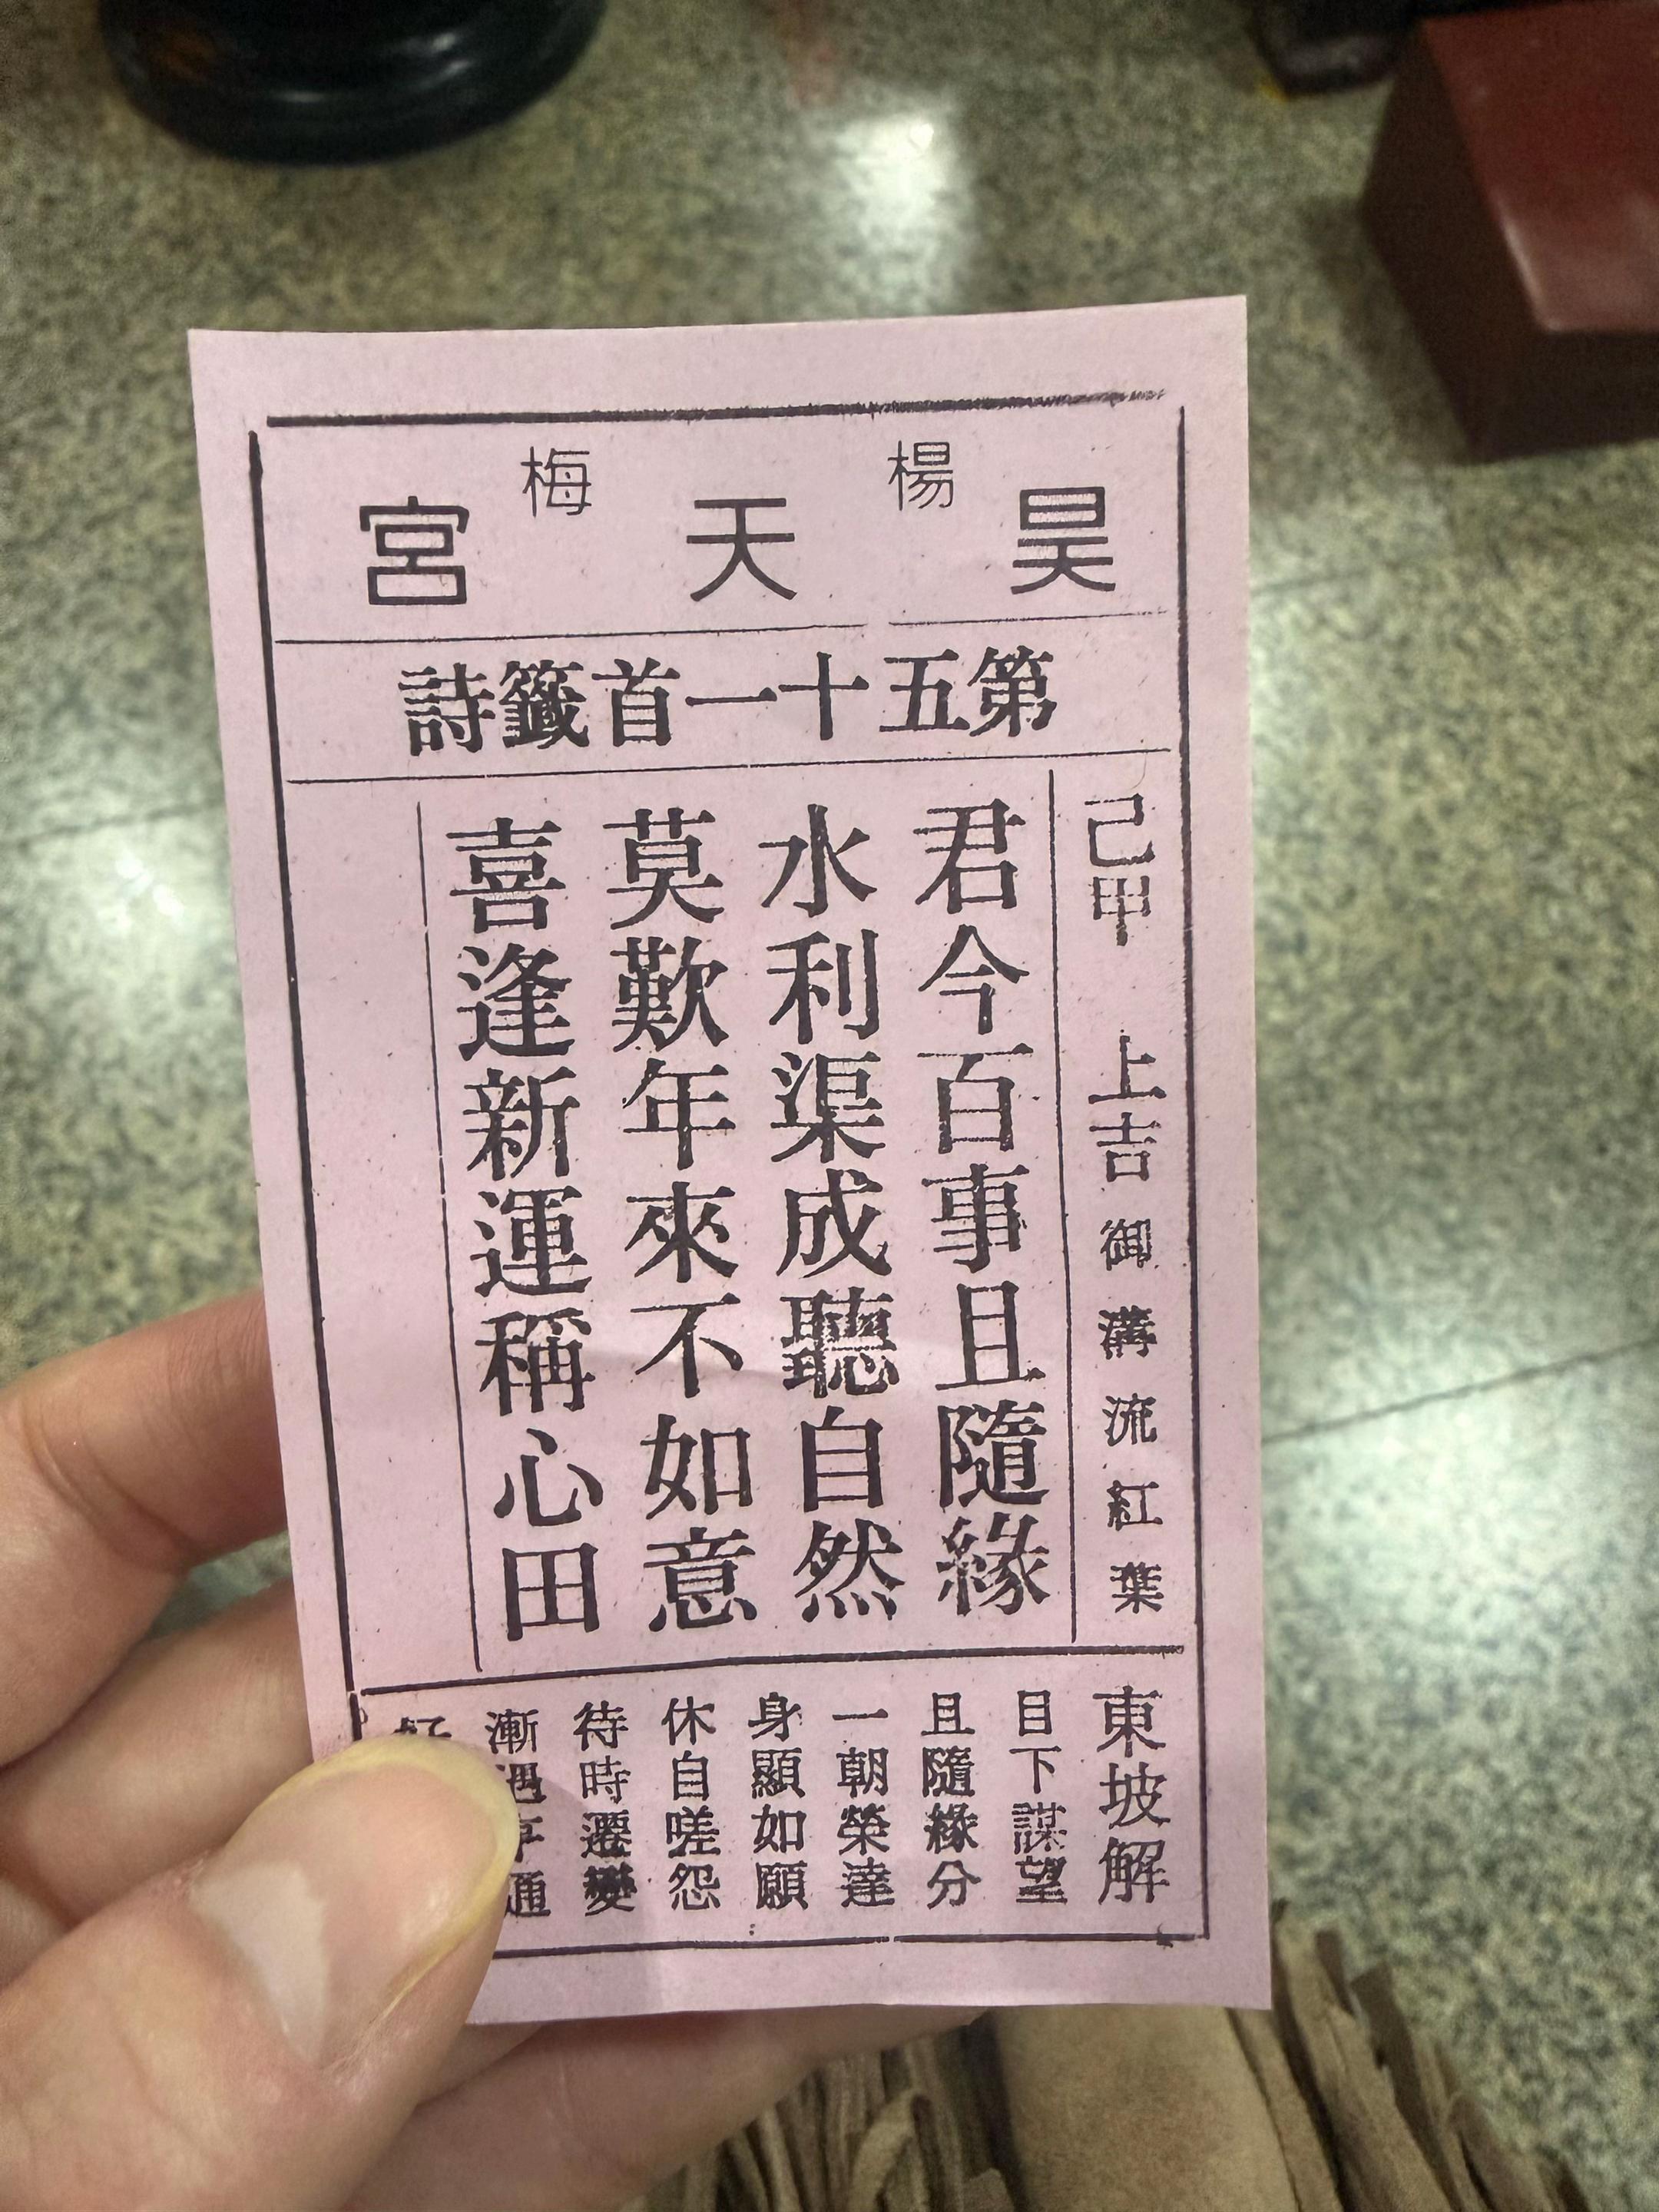 楊梅
昊天宮
第五十一首籤詩
己甲 上吉 御溝流紅葉
君今百事且隨緣
水利渠成聽自然
莫歎年來不如意
喜逢新運稱心田
東坡解
目下謀望
且隨緣分
一朝榮達
身顯如願
休自嗟怨
待時遷變
漸遇亨通